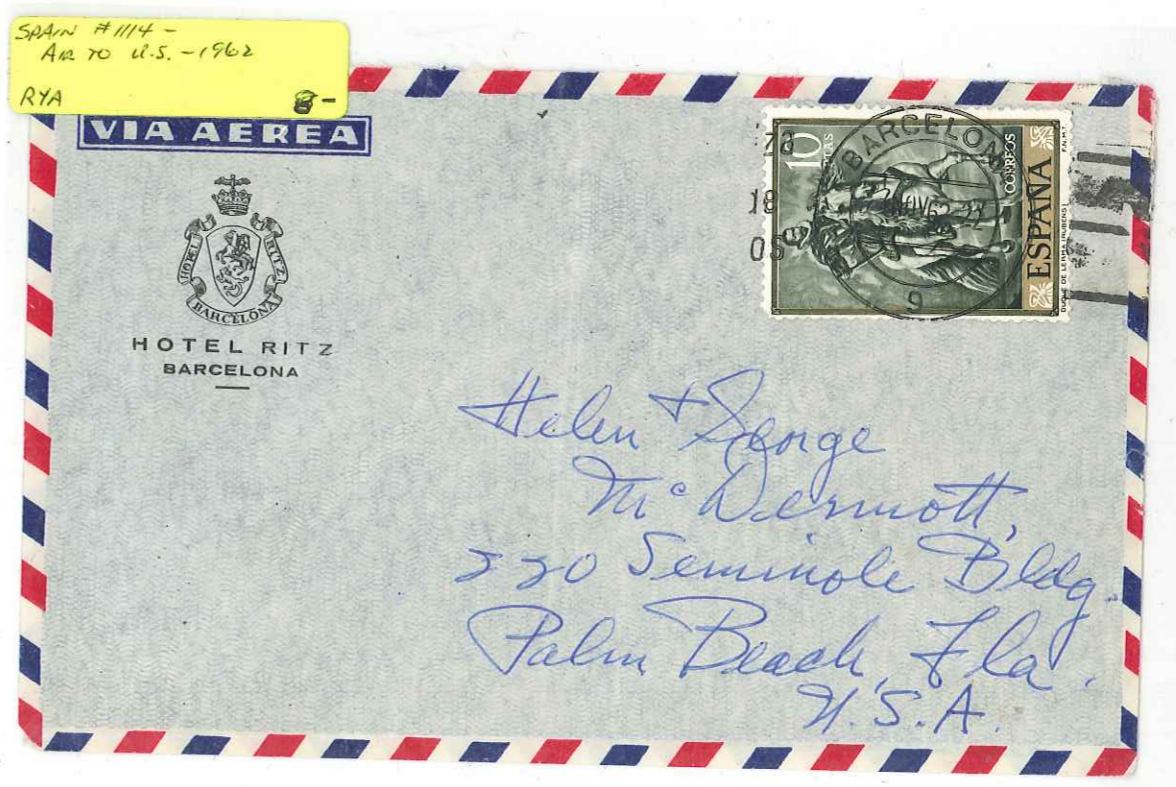 SPAIN #1114 -
AIR TO U.S. - 1962
RYA 8 -
VIA AEREA
HOTEL RITZ
BARCELONA
HOTEL RITZ
BARCELONA
10 PTAS
CORREOS
ESPAÑA
DUQUE DE LERMA (RUBENS)
F.N.M.T.
BARCELONA
9
18
Helen + George
McDermott,
220 Seminole Bldg.
Palm Beach, Fla.
U.S.A.